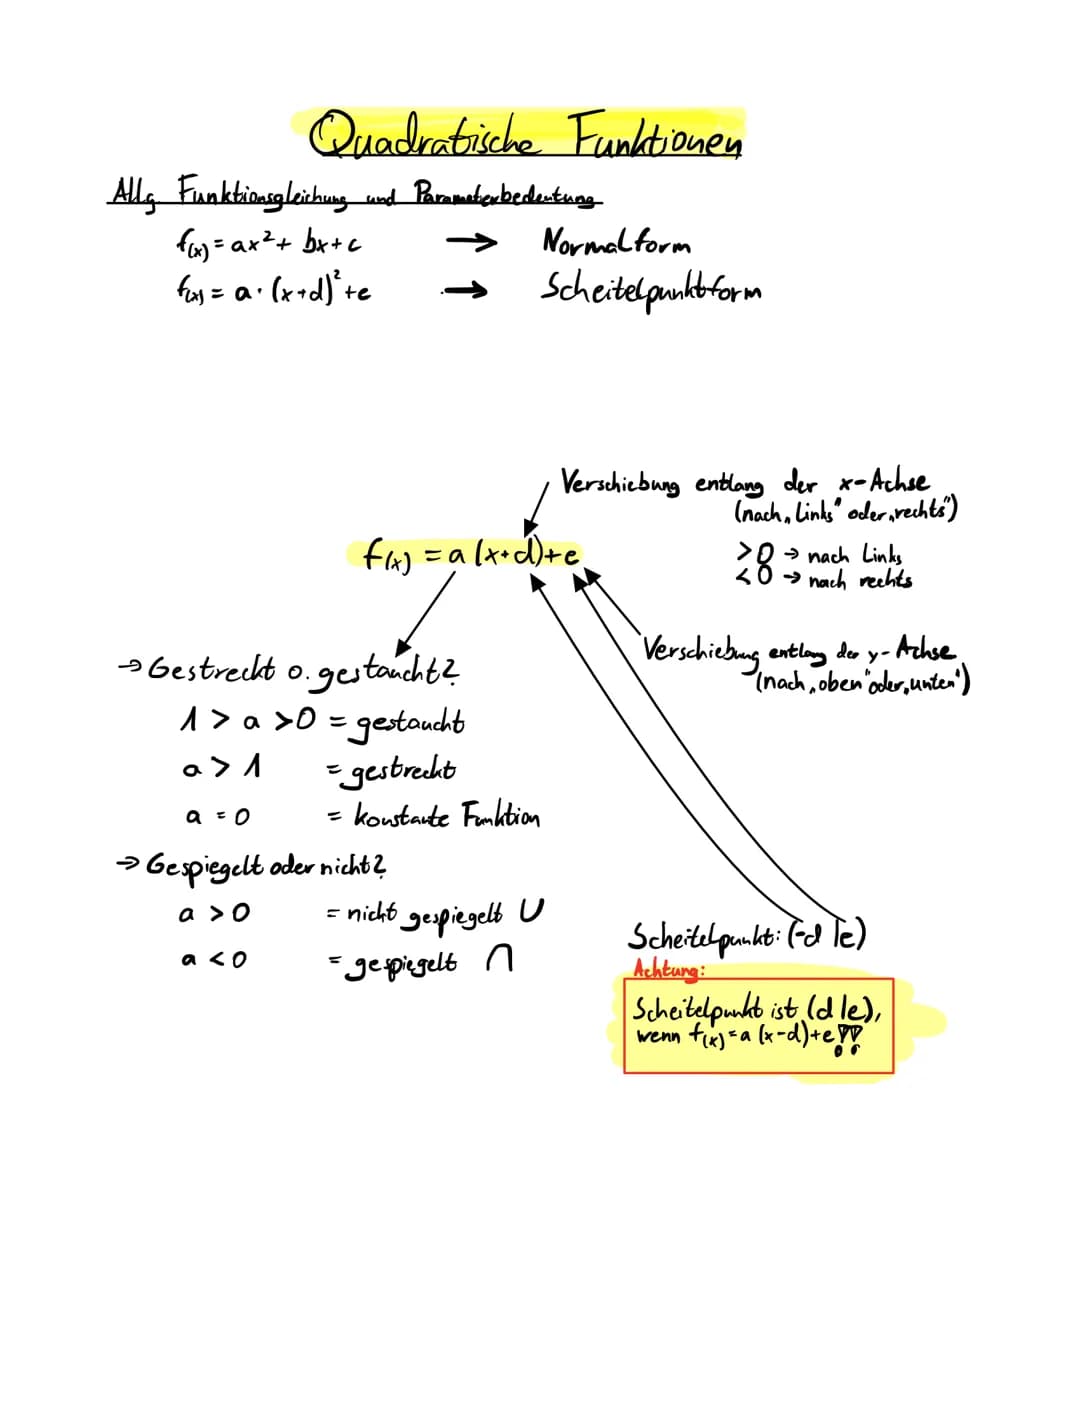 Quadratische Funktionen
Allg. Funktionsgleichung und Parameterbedeutung
f(x) = ax² + bx + c → Normalform
f(x) = a · (x+d)² + e → Scheitelpunktform
Verschiebung entlang der x-Achse
(nach „Links" oder „rechts")
f(x) = a (x+d)+e
>0 → nach Links
<0 → nach rechts
Verschiebung entlang der y-Achse
(nach „oben" oder „unten")
→ Gestreckt o. gestaucht?
1 > a > 0 = gestaucht
a > 1 = gestreckt
a = 0 = konstante Funktion
→ Gespiegelt oder nicht?
a > 0 = nicht gespiegelt ∪
a < 0 = gespiegelt ∩
Scheitelpunkt: (-d|e)
Achtung:
Scheitelpunkt ist (d|e),
wenn f(x) = a (x-d)+e!!